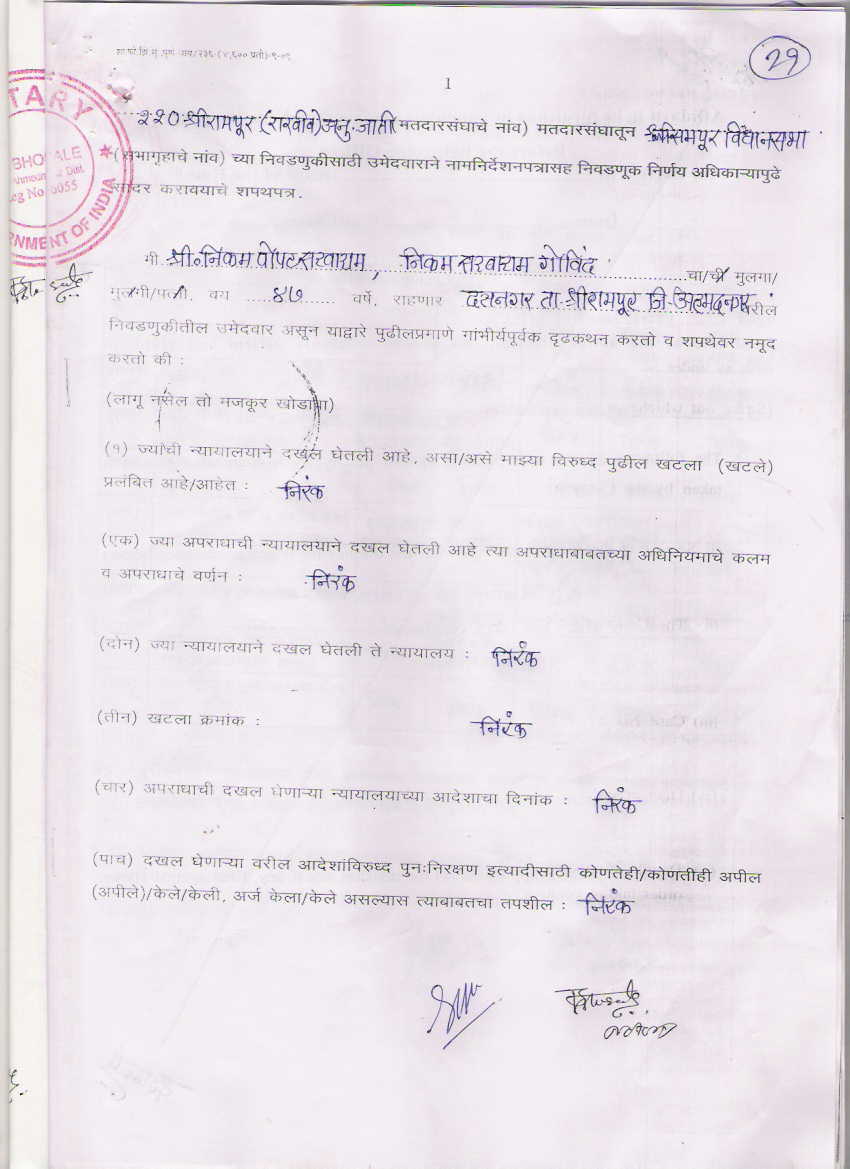 29
1
२२० श्रीरामपूर (राखीव) अनु. जाती (मतदारसंघाचे नांव) मतदारसंघातून श्रीरामपूर विधानसभा
(सभागृहाचे नांव) च्या निवडणुकीसाठी उमेदवाराने नामनिर्देशनपत्रासह निवडणूक निर्णय अधिकाऱ्यापुढे
सादर करावयाचे शपथपत्र.
मी श्री. निकम पोपट सखाराम, निकम सखाराम गोविंद चा/ची मुलगा/
मुलगी/पत्नी. वय ४७ वर्षे, राहणार दत्तनगर ता. श्रीरामपूर जि. अहमदनगर वरील
निवडणुकीतील उमेदवार असून याद्वारे पुढीलप्रमाणे गांभीर्यपूर्वक दृढकथन करतो व शपथेवर नमूद
करतो की :
(लागू नसेल तो मजकूर खोडावा)
(१) ज्यांची न्यायालयाने दखल घेतली आहे, असा/असे माझ्या विरुध्द पुढील खटला (खटले)
प्रलंबित आहे/आहेत : निरंक
(एक) ज्या अपराधाची न्यायालयाने दखल घेतली आहे त्या अपराधाबाबतच्या अधिनियमाचे कलम
व अपराधाचे वर्णन : निरंक
(दोन) ज्या न्यायालयाने दखल घेतली ते न्यायालय : निरंक
(तीन) खटला क्रमांक : निरंक
(चार) अपराधाची दखल घेणाऱ्या न्यायालयाच्या आदेशाचा दिनांक : निरंक
(पाच) दखल घेणाऱ्या वरील आदेशांविरुध्द पुनःनिरक्षण इत्यादीसाठी कोणतेही/कोणतीही अपील
(अपीले)/केले/केली, अर्ज केला/केले असल्यास त्याबाबतचा तपशील : निरंक